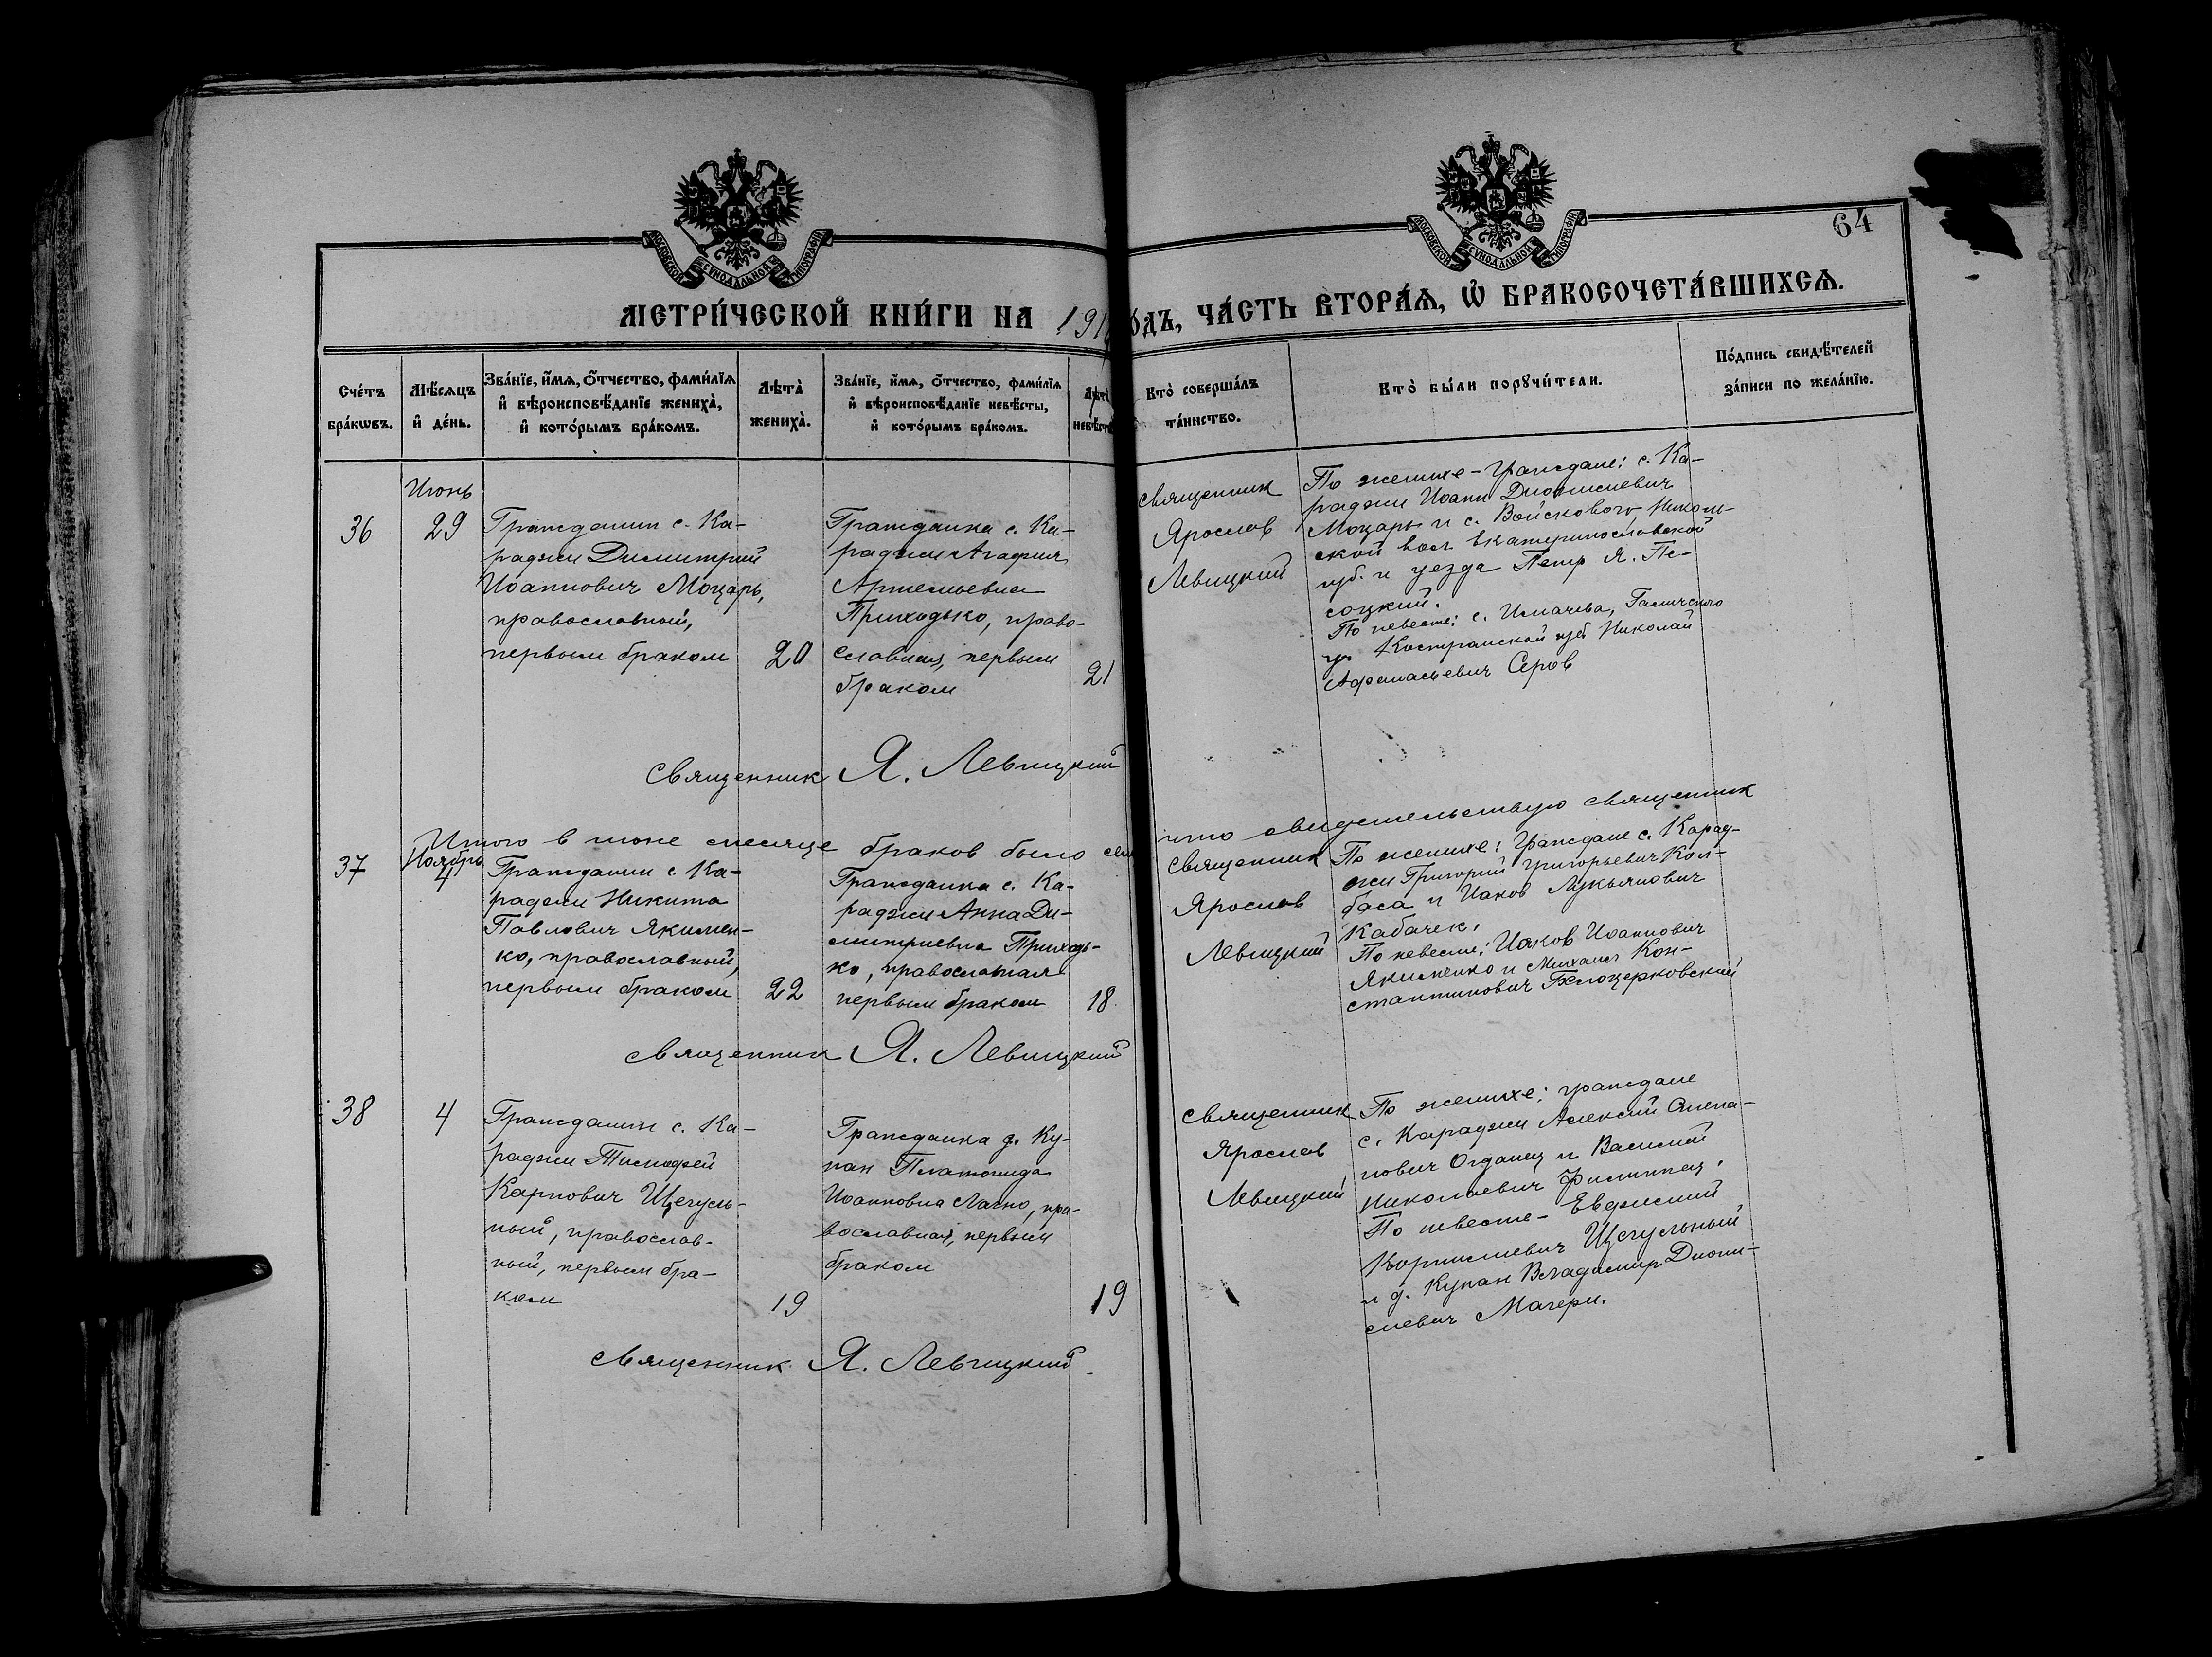 МОСКОВСКОЙ СѴНОДАЛЬНОЙ ТИПОГРАФІИ
МОСКОВСКОЙ СѴНОДАЛЬНОЙ ТИПОГРАФІИ
64
МЕТРИ́ЧЕСКОЙ КНИ́ГИ НА 191
О́ДЪ, ЧА́СТЬ ВТОРА́Ѧ, Ѡ҆ БРАКОСОЧЕТА́ВШИХСѦ.
Сче́тъ
бра́кѡвъ.
Мѣ́сѧцъ
и҆ де́нь.
Зва́нїе, и҆́мѧ, ѻ҆́тчество, фами́лїѧ
и҆ вѣроисповѣ́данїе жениха̀,
и҆ кото́рымъ бра́комъ.
Лѣта̀
жениха̀.
Зва́нїе, и҆́мѧ, ѻ҆́тчество, фами́лїѧ
и҆ вѣроисповѣ́данїе невѣ́сты,
и҆ кото́рымъ бра́комъ.
Лѣта̀
невѣ́ст
Кто̀ соверша́лъ
та́инство.
Кто̀ бы́ли порꙋчи́тели.
По́дпись свидѣ́телей
за́писи по жела́нїю.
36
Июнь
29
Гражданин с. Ка-
раджи Димитрий
Иоаннович Моцарь,
православный,
первым браком
20
Гражданка с. Ка-
раджи Агафия
Артемьевна
Приходько, право-
славная, первым
браком
21
Священник
Ярослав
Левицкий
По женихе - граждане: с. Ка-
раджи Иоанн Дионисиевич
Моцарь и с. Войскового Николь-
ской вол Екатеринославской
губ. и уезда Петр Я. Пе-
соцкий.
По невесте: с. Галичского
у. Костромской губ Николай
Афанасьевич Серов
Священник Я. Левицкий
Итого в июне месяце браков было сем
что свидетельствую священник
37
Ноябрь
4
Гражданин с. Ка-
раджи Никита
Павлович Якимен-
ко, православный,
первым браком
22
Гражданка с. Ка-
раджи Анна Ди-
митриевна Приходь-
ко, православная
первым браком
18
Священник
Ярослав
Левицкий
По женихе: граждане с. Карад-
жи Григорий Григорьевич Кол-
баса и Иаков Лукьянович
Кабачек,
По невесте: Иаков Иоаннович
Якименко и Михаил Кон-
стантинович Белоцерковский
Священник Я. Левицкий
38
4
Гражданин с. Ка-
раджи Тимофей
Карпович Щегуль-
ный, православ-
ный, первым бра-
ком
19
Гражданка д. Ку-
лан Платонида
Иоанновна, пра-
вославная, первым
браком
19
Священник
Ярослав
Левицкий
По женихе: граждане
с. Караджи Алексий Степа-
нович и Василий
Николаевич Филиппец.
По невесте - Евфимий
Корнилиевич Щегульный
и д. Кулан Владимир Диони-
сиевич
Священник Я. Левицкий